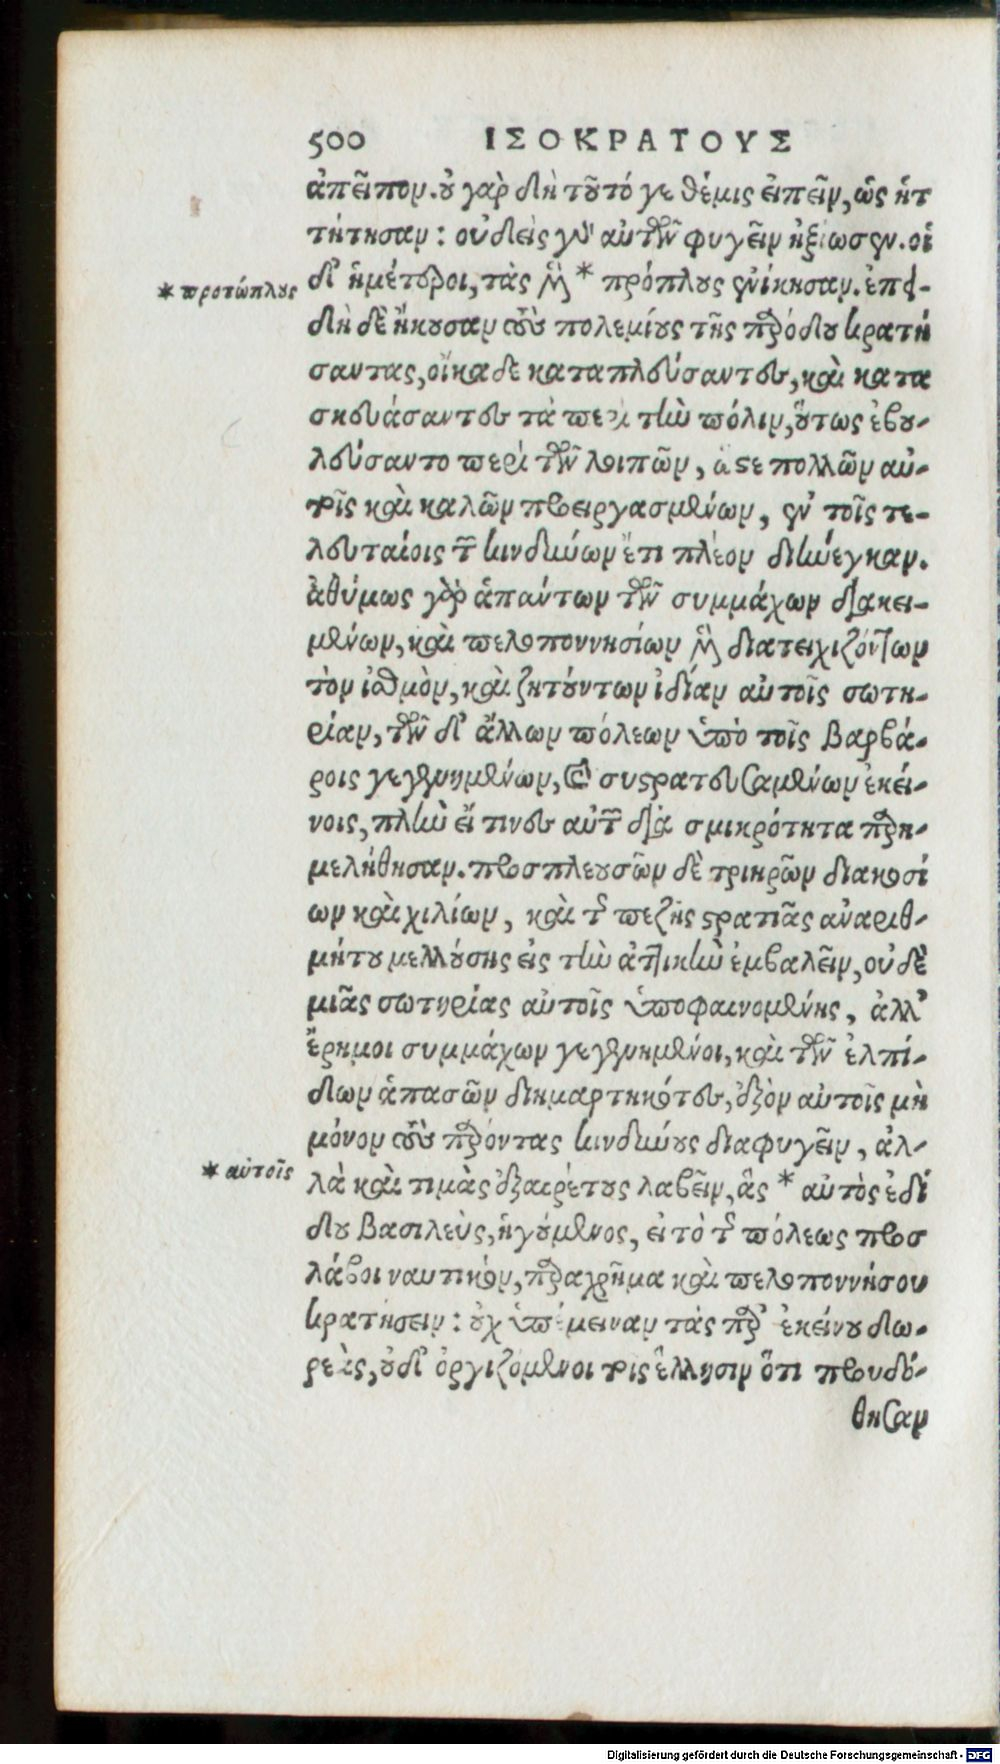 500 ΙΣΟΚΡΑΤΟΥΣ
ἀπεῖπον. οὐ γὰρ δὴ τοῦτό γε θέμις εἰπεῖν, ὡς ἡτ
τήθησαν: οὐδεὶς γὰρ αὐτῶν φυγεῖν ἠξίωσεν. οἱ
δ' ἡμέτεροι, τὰς μὲν * πρόπλους ἐνίκησαν. ἐπει-
* πρωτόπλους
δὴ δὲ ἤκουσαν τοὺς πολεμίους τῆς παρόδου κρατή
σαντας, οἴκαδε καταπλεύσαντες, καὶ κατα
σκευάσαντες τὰ περὶ τὴν πόλιν, οὕτως ἐβου-
λεύσαντο περὶ τῶν λοιπῶν, ὥστε πολλῶν αὐ-
τοῖς καὶ καλῶν προειργασμένων, ἐν τοῖς τε-
λευταίοις τῶν κινδύνων ἔτι πλέον διήνεγκαν.
ἀθύμως γὰρ ἁπάντων τῶν συμμάχων διακει-
μένων, καὶ πελοποννησίων μὲν διατειχιζόντων
τὸν ἰσθμὸν, καὶ ζητούντων ἰδίαν αὐτοῖς σωτη-
ρίαν, τῶν δ' ἄλλων πόλεων ὑπὸ τοῖς βαρβά-
ροις γεγενημένων, καὶ συστρατευσαμένων ἐκεί-
νοις, πλὴν εἴ τινες αὐτῶν διὰ σμικρότητα παρη-
μελήθησαν. προσπλευσῶν δὲ τριηρῶν διακοσί
ων καὶ χιλίων, καὶ τῆς πεζῆς στρατιᾶς ἀναριθ-
μήτου μελλούσης εἰς τὴν ἀττικὴν ἐμβαλεῖν, οὐδὲ
μιᾶς σωτηρίας αὐτοῖς ὑποφαινομένης, ἀλλ'
ἔρημοι συμμάχων γεγενημένοι, καὶ τῶν ἐλπί-
δων ἁπασῶν διημαρτηκότες, ἐξὸν αὐτοῖς μὴ
μόνον τοὺς παρόντας κινδύνους διαφυγεῖν, ἀλ-
* αὐτοῖς
λὰ καὶ τιμὰς ἐξαιρέτους λαβεῖν, ἃς * αὐτὸς ἐδί
δου βασιλεὺς, ἡγούμενος, εἰ τὸ τῆς πόλεως προσ
λάβοι ναυτικὸν, παραχρῆμα καὶ πελοποννήσου
κρατήσειν: οὐχ ὑπέμειναν τὰς παρ' ἐκείνου δω-
ρεὰς, οὐδ' ὀργιζόμενοι τοῖς ἕλλησιν ὅτι προυδό-
θησαν
Digitalisierung gefördert durch die Deutsche Forschungsgemeinschaft - DFG